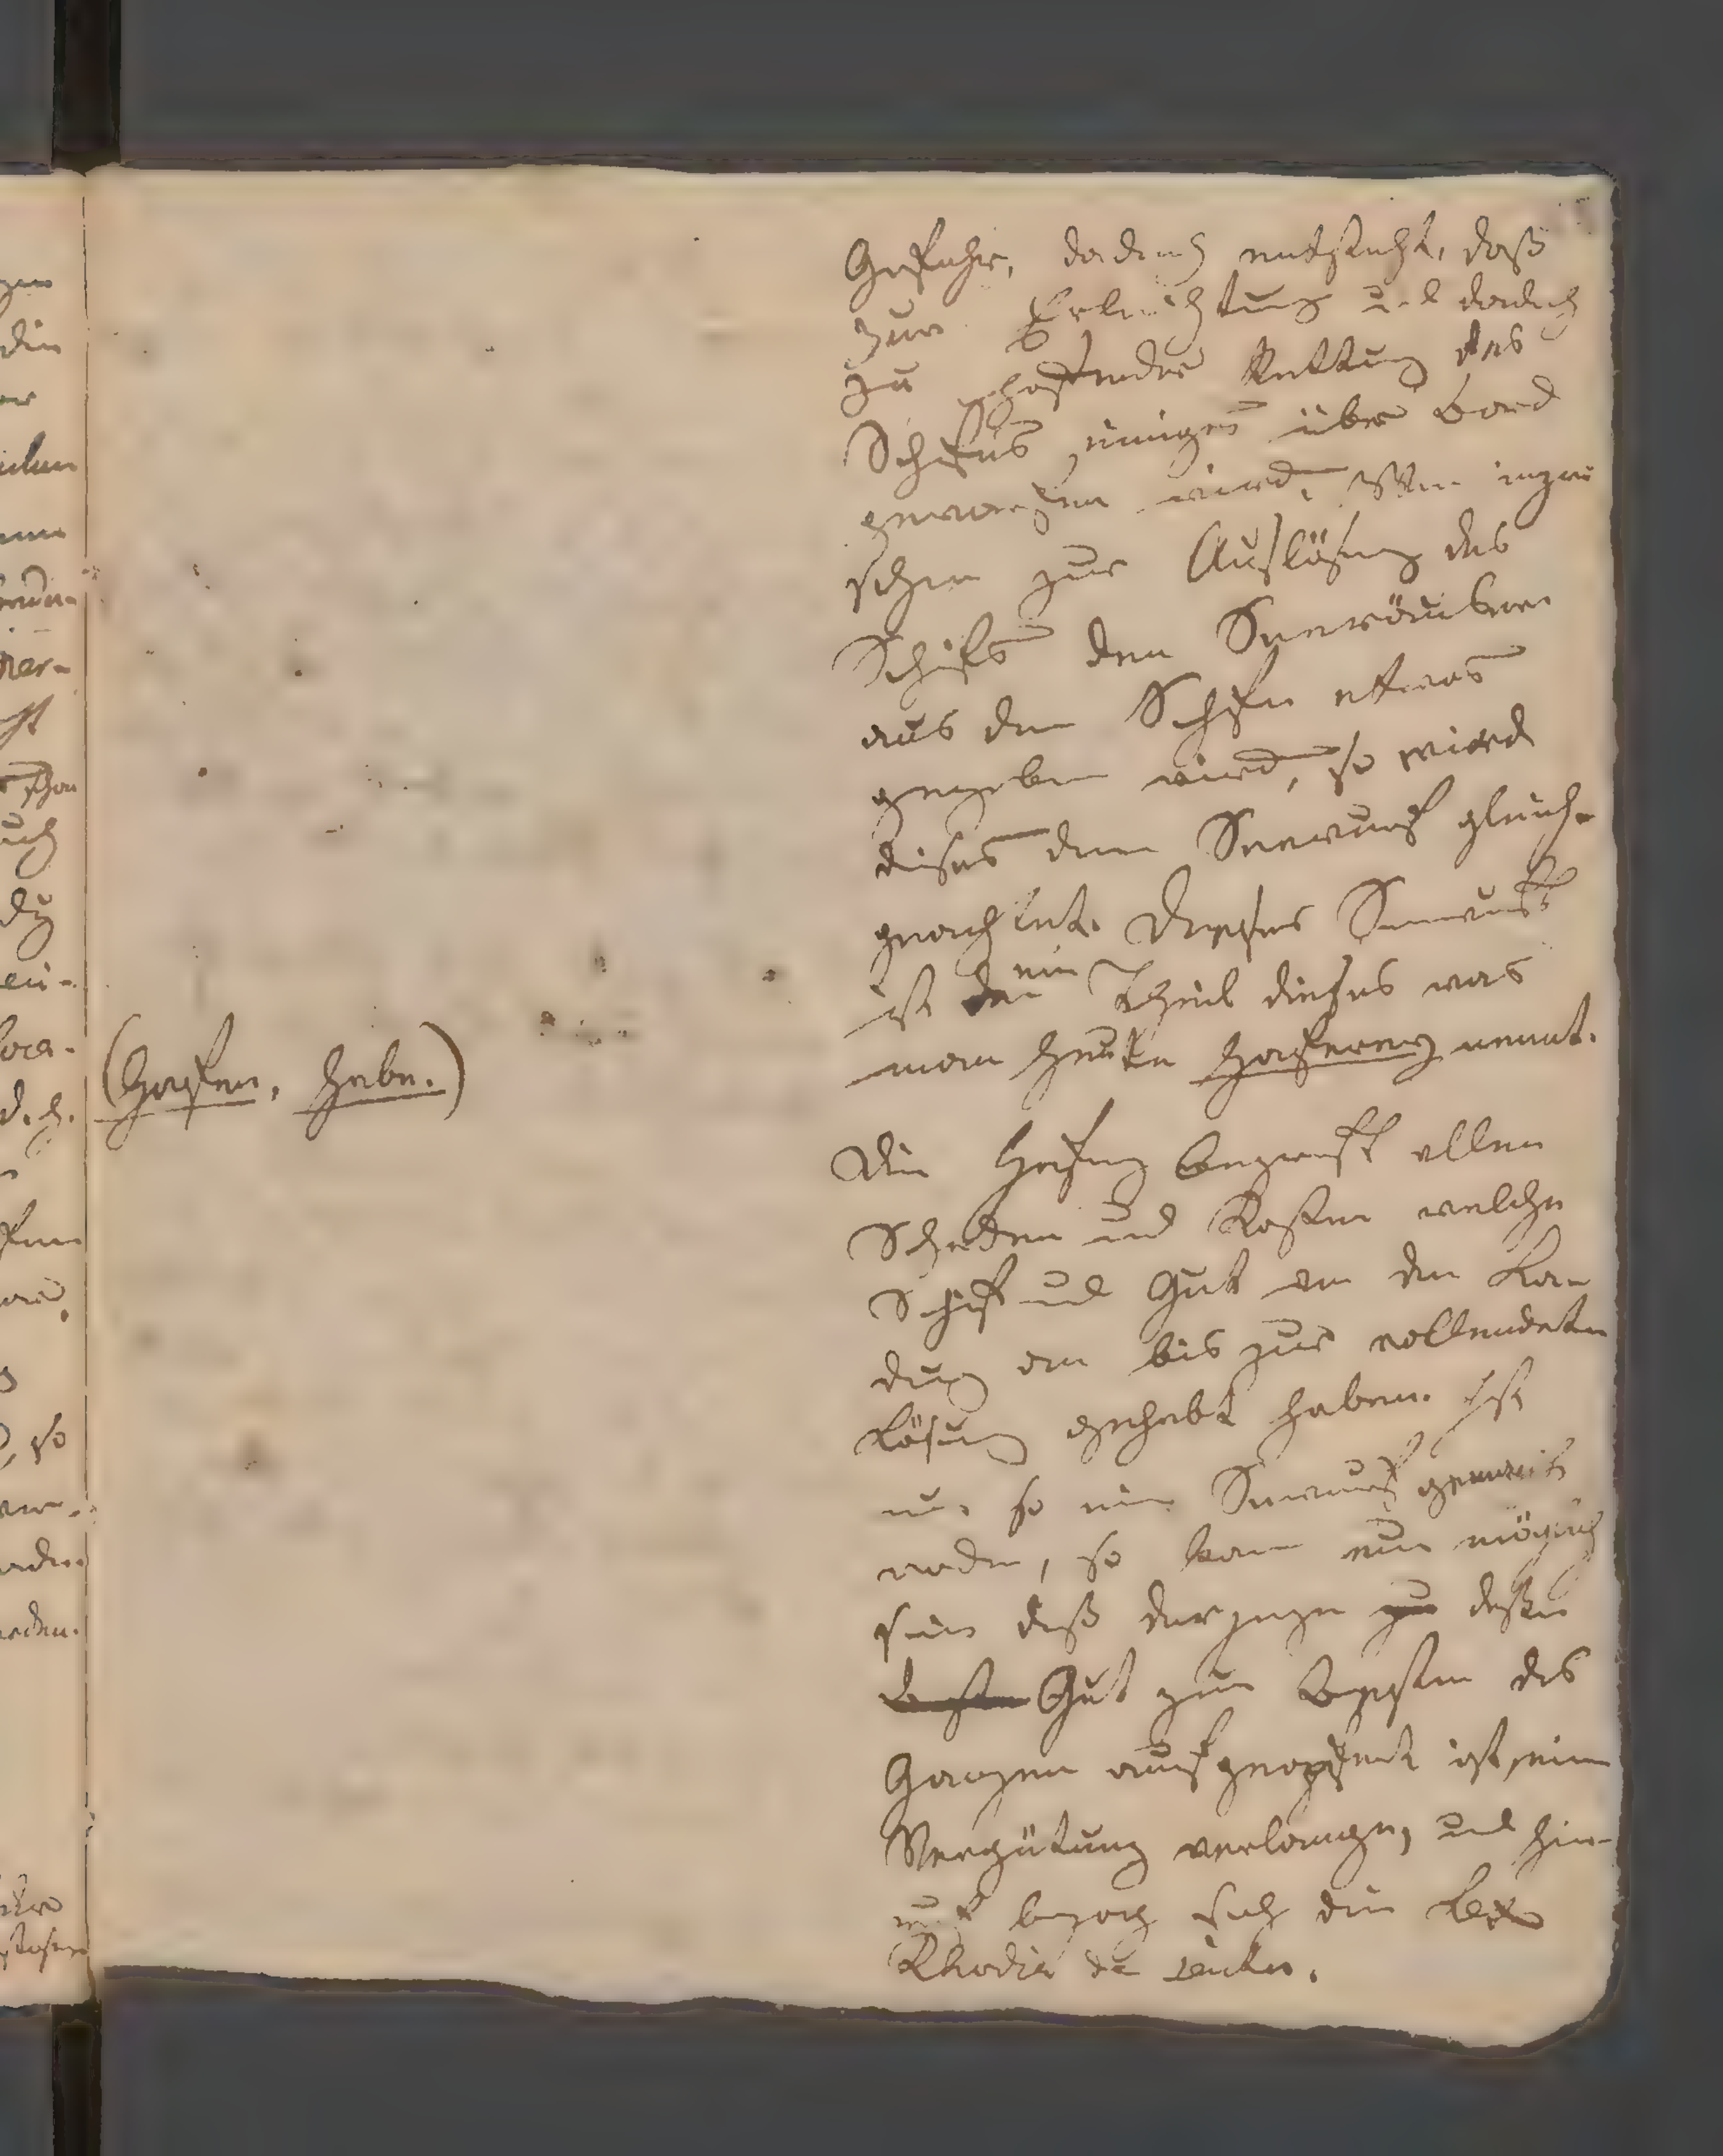 Gefahr, dadurch entsteht, daß
zur Erleichtung und dadurch
zu hoffender Rettung des
Schifes einiges über Bord
geworfen wird. Wenn inzwi
schen zur Auslösung des
Schifs den Seeräubern
aus dem Schife etwas
gegeben wird, so wird
dises dem Seewurf gleich-
geachtet. Dieser Seewurf
ist ein Theil dieses was
man heute Haferey nennt.
(Hafen, Habe.)
Die Haferey begreift allen
Schaden und Kosten welche
Schif und Gut von der La
dung an bis zur vollendeten
Lösung gehabt haben. Ist
nu so ein Seewurf gemacht
worden, so kann nun möglich
sein daß derjenige deßen
Gut zum Besten des
Ganzen aufgeopfert ist, eine
Vergütung verlange, und hier-
auf bezog sich die Lex
Rhodia de iactu.